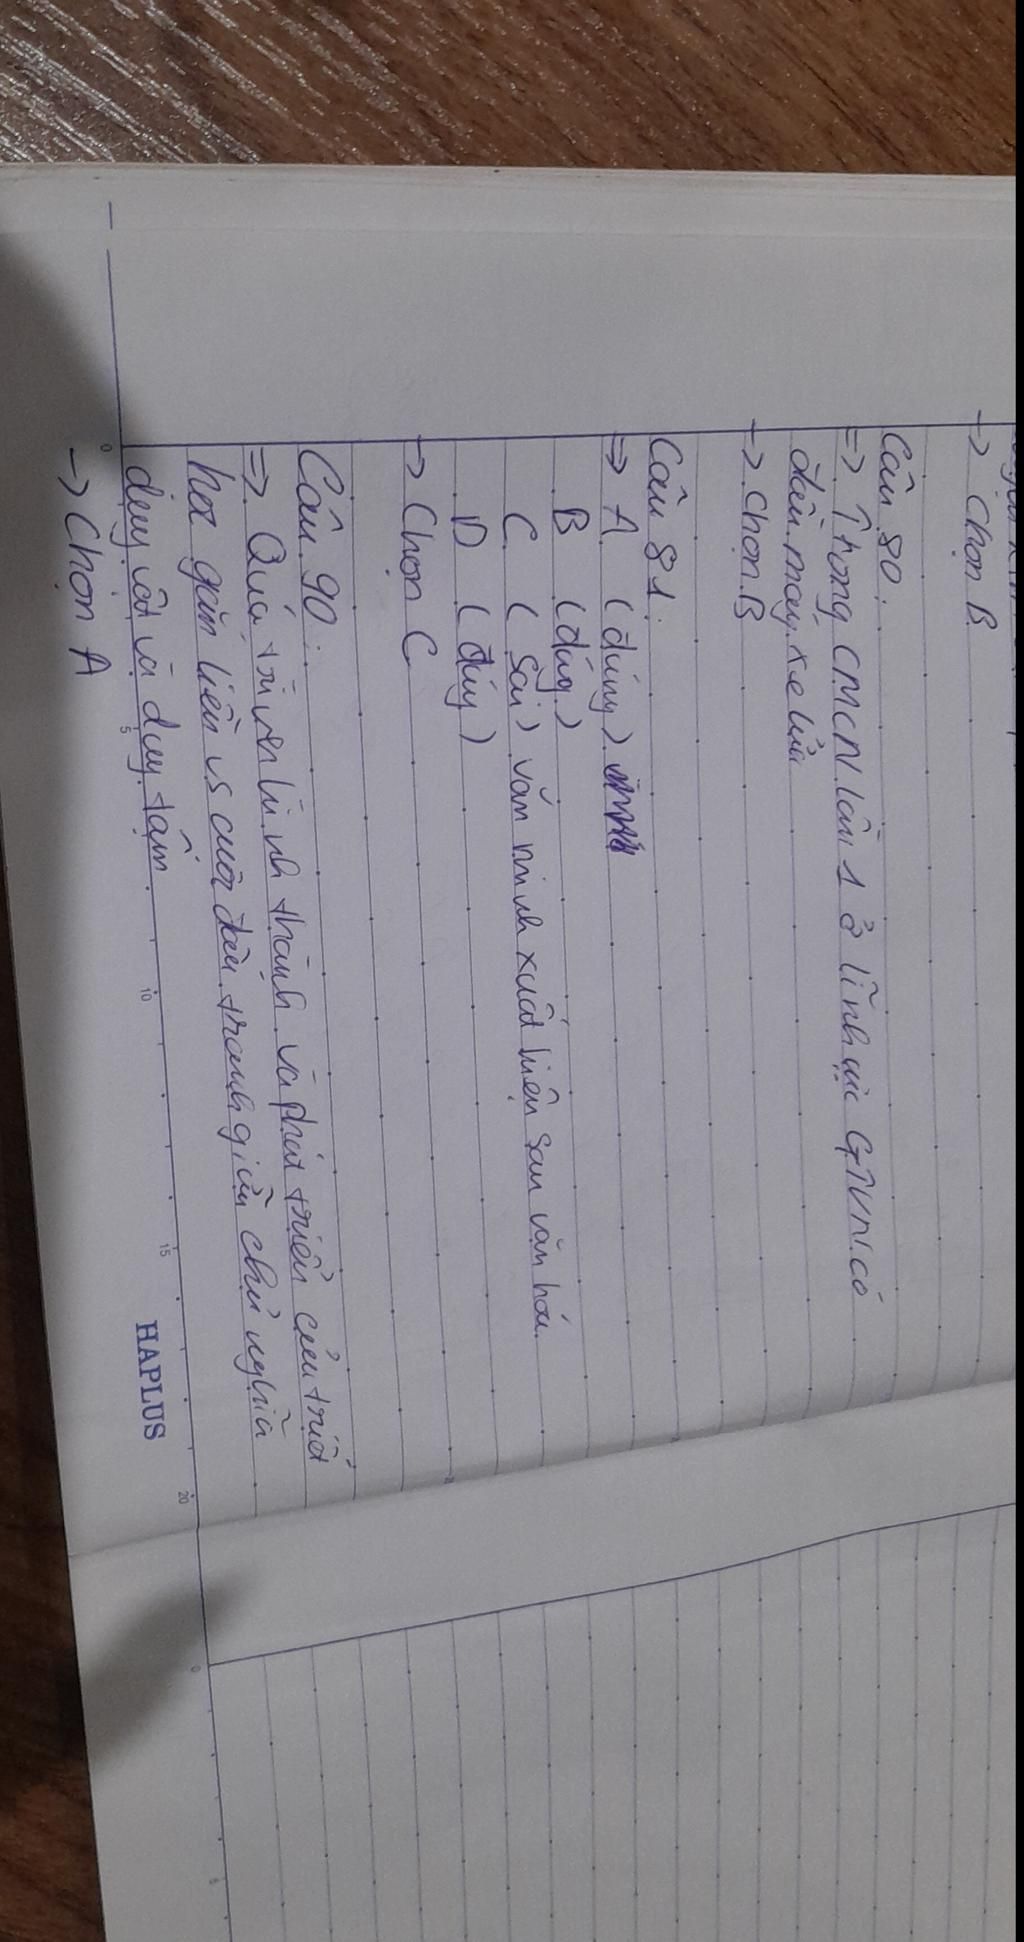 → Chọn B
Câu 80:
=> Trong CMCN lần 1 ở lĩnh vực GTVT có
đầu máy xe lửa
→ Chọn B
Câu 81:
=> A (đúng)
B (đúng)
C (Sai) văn minh xuất hiện sau văn hóa
D (đúng)
→ Chọn C
Câu 90:
=> Quá trình hình thành và phát triển của triết
học gắn liền vs cuộc đấu tranh giữa chủ nghĩa
duy vật và duy tâm
→ Chọn A
0 5 10 15 20
HAPLUS
0 5